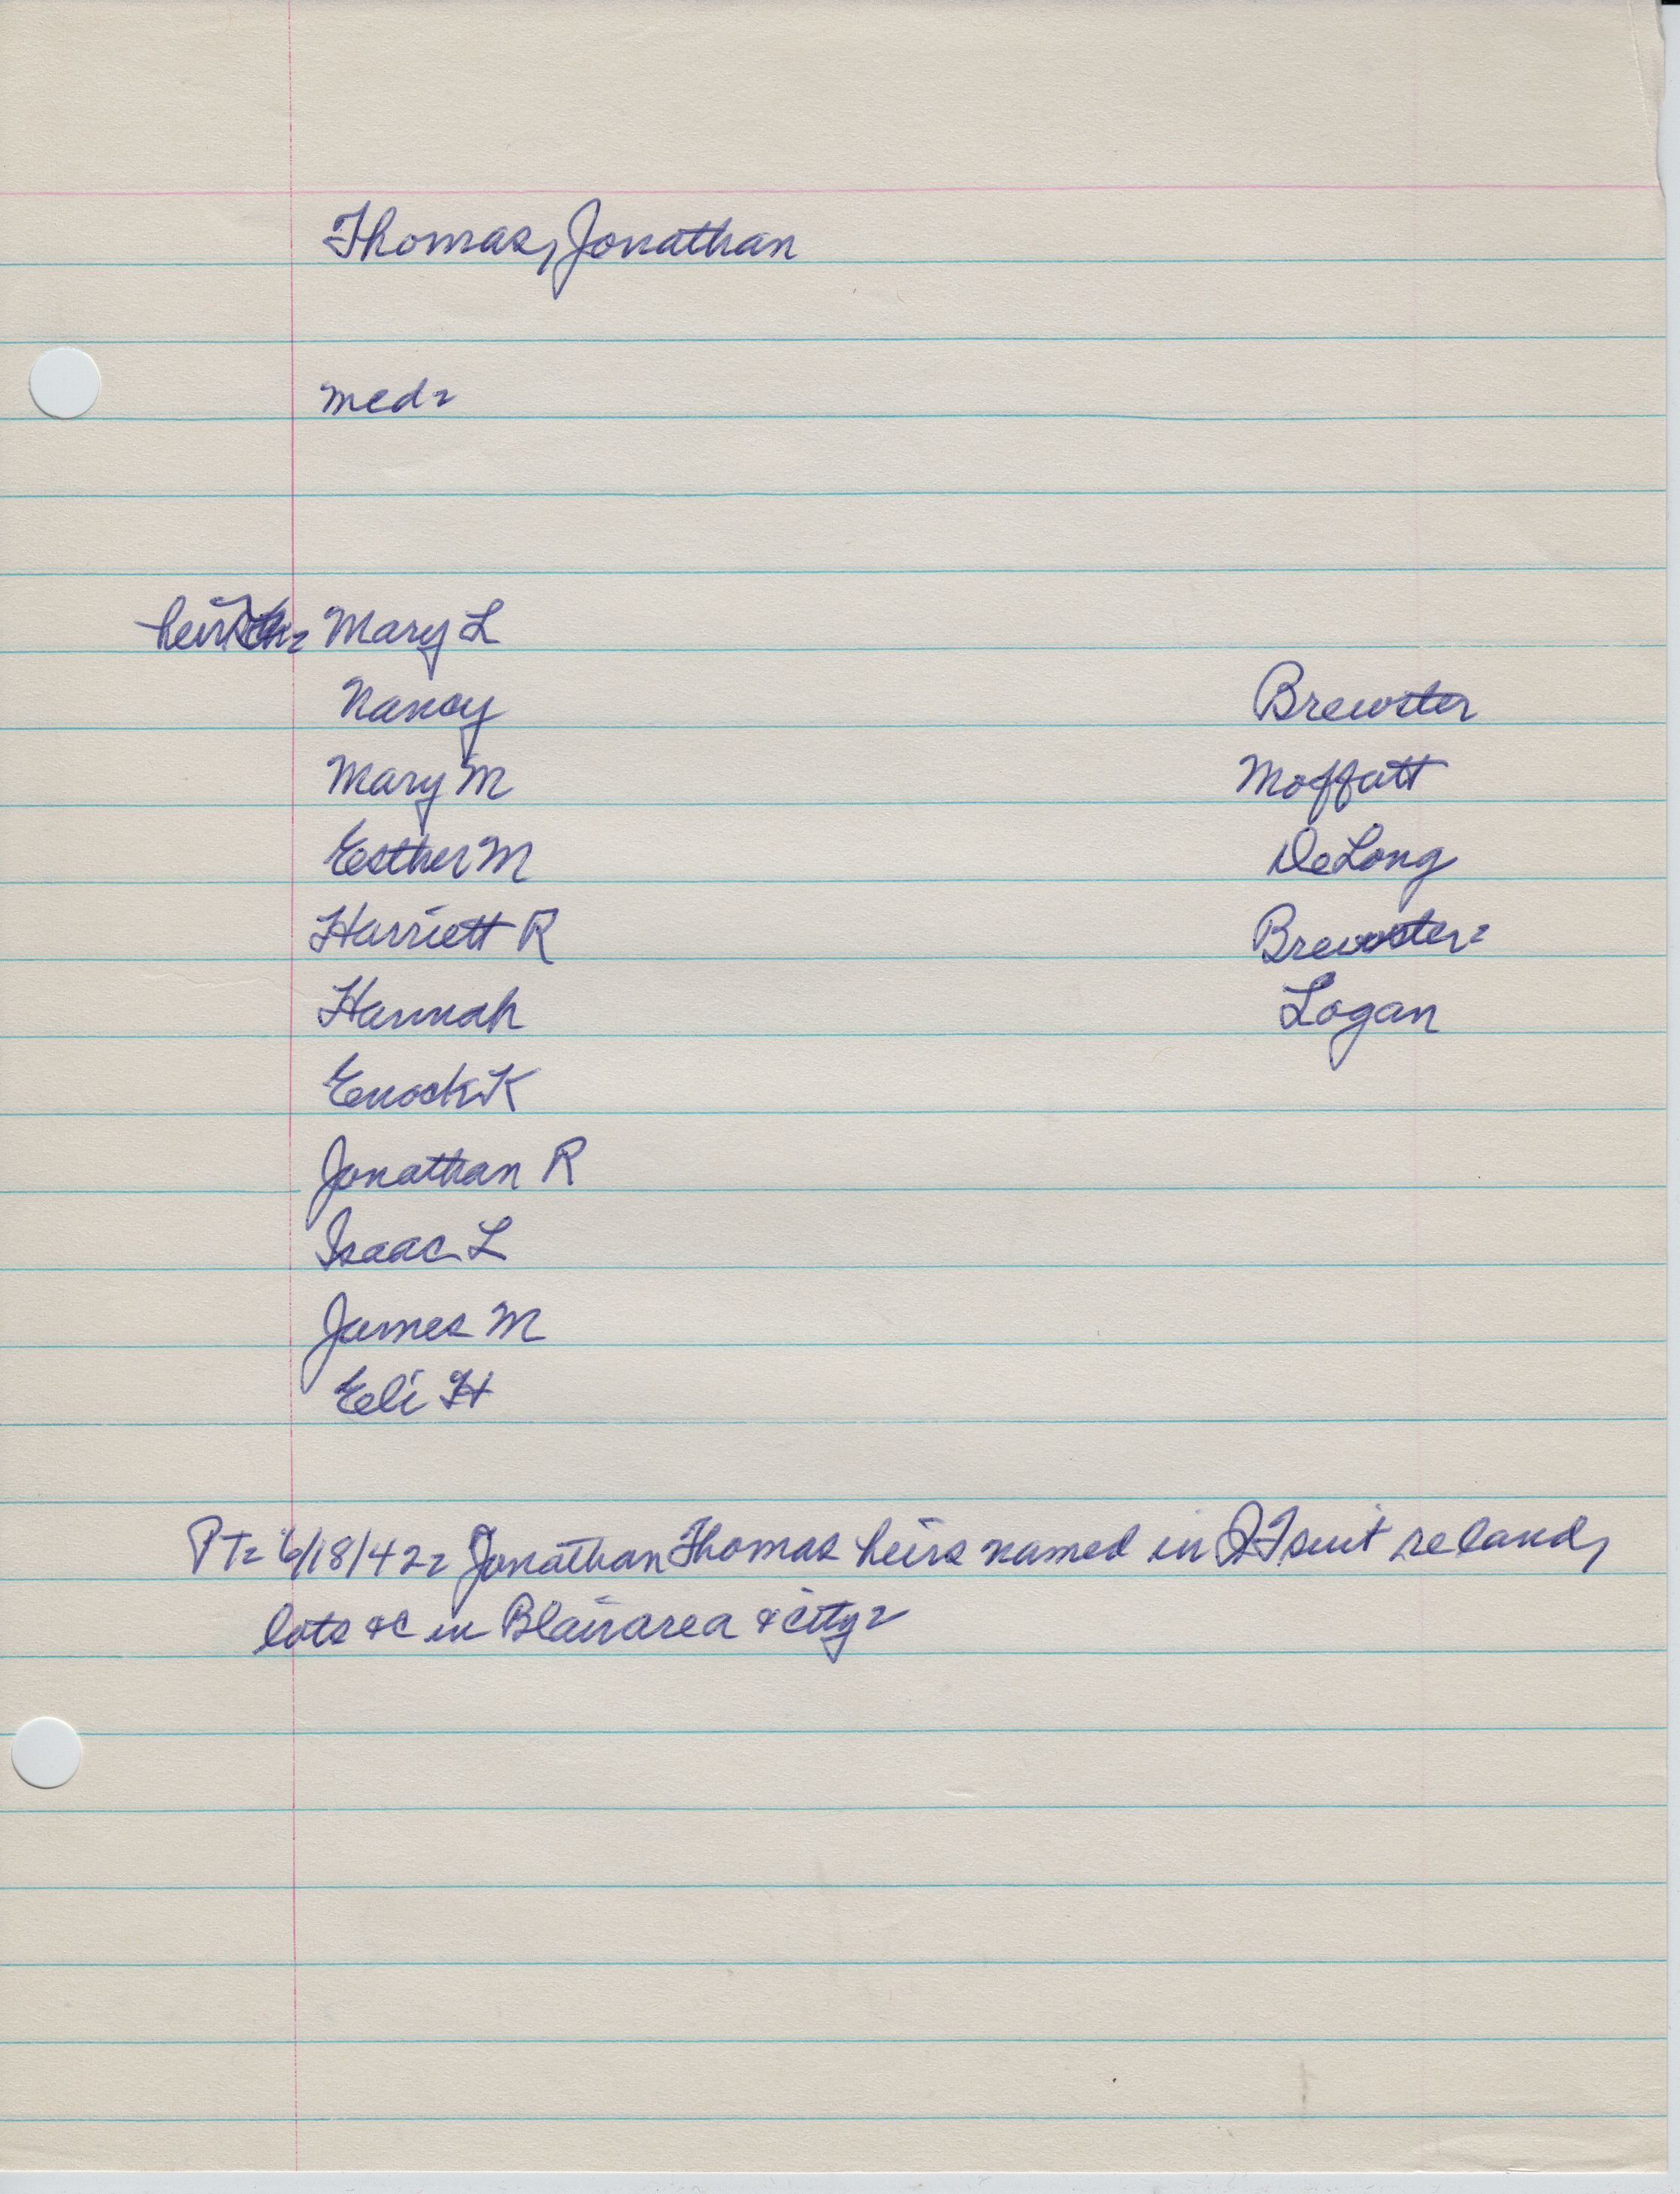 Thomas, Jonathan
med=
heirs = Mary L
Nancy Brewster
Mary M Moffatt
Esther M DeLong
Harriett R Brewster=
Hannah Logan
Enock K
Jonathan R
Isaac L
James M
Eli H
PT= 6/18/42= Jonathan Thomas heirs named in QT suit re land,
lots &c in Blair area & city=